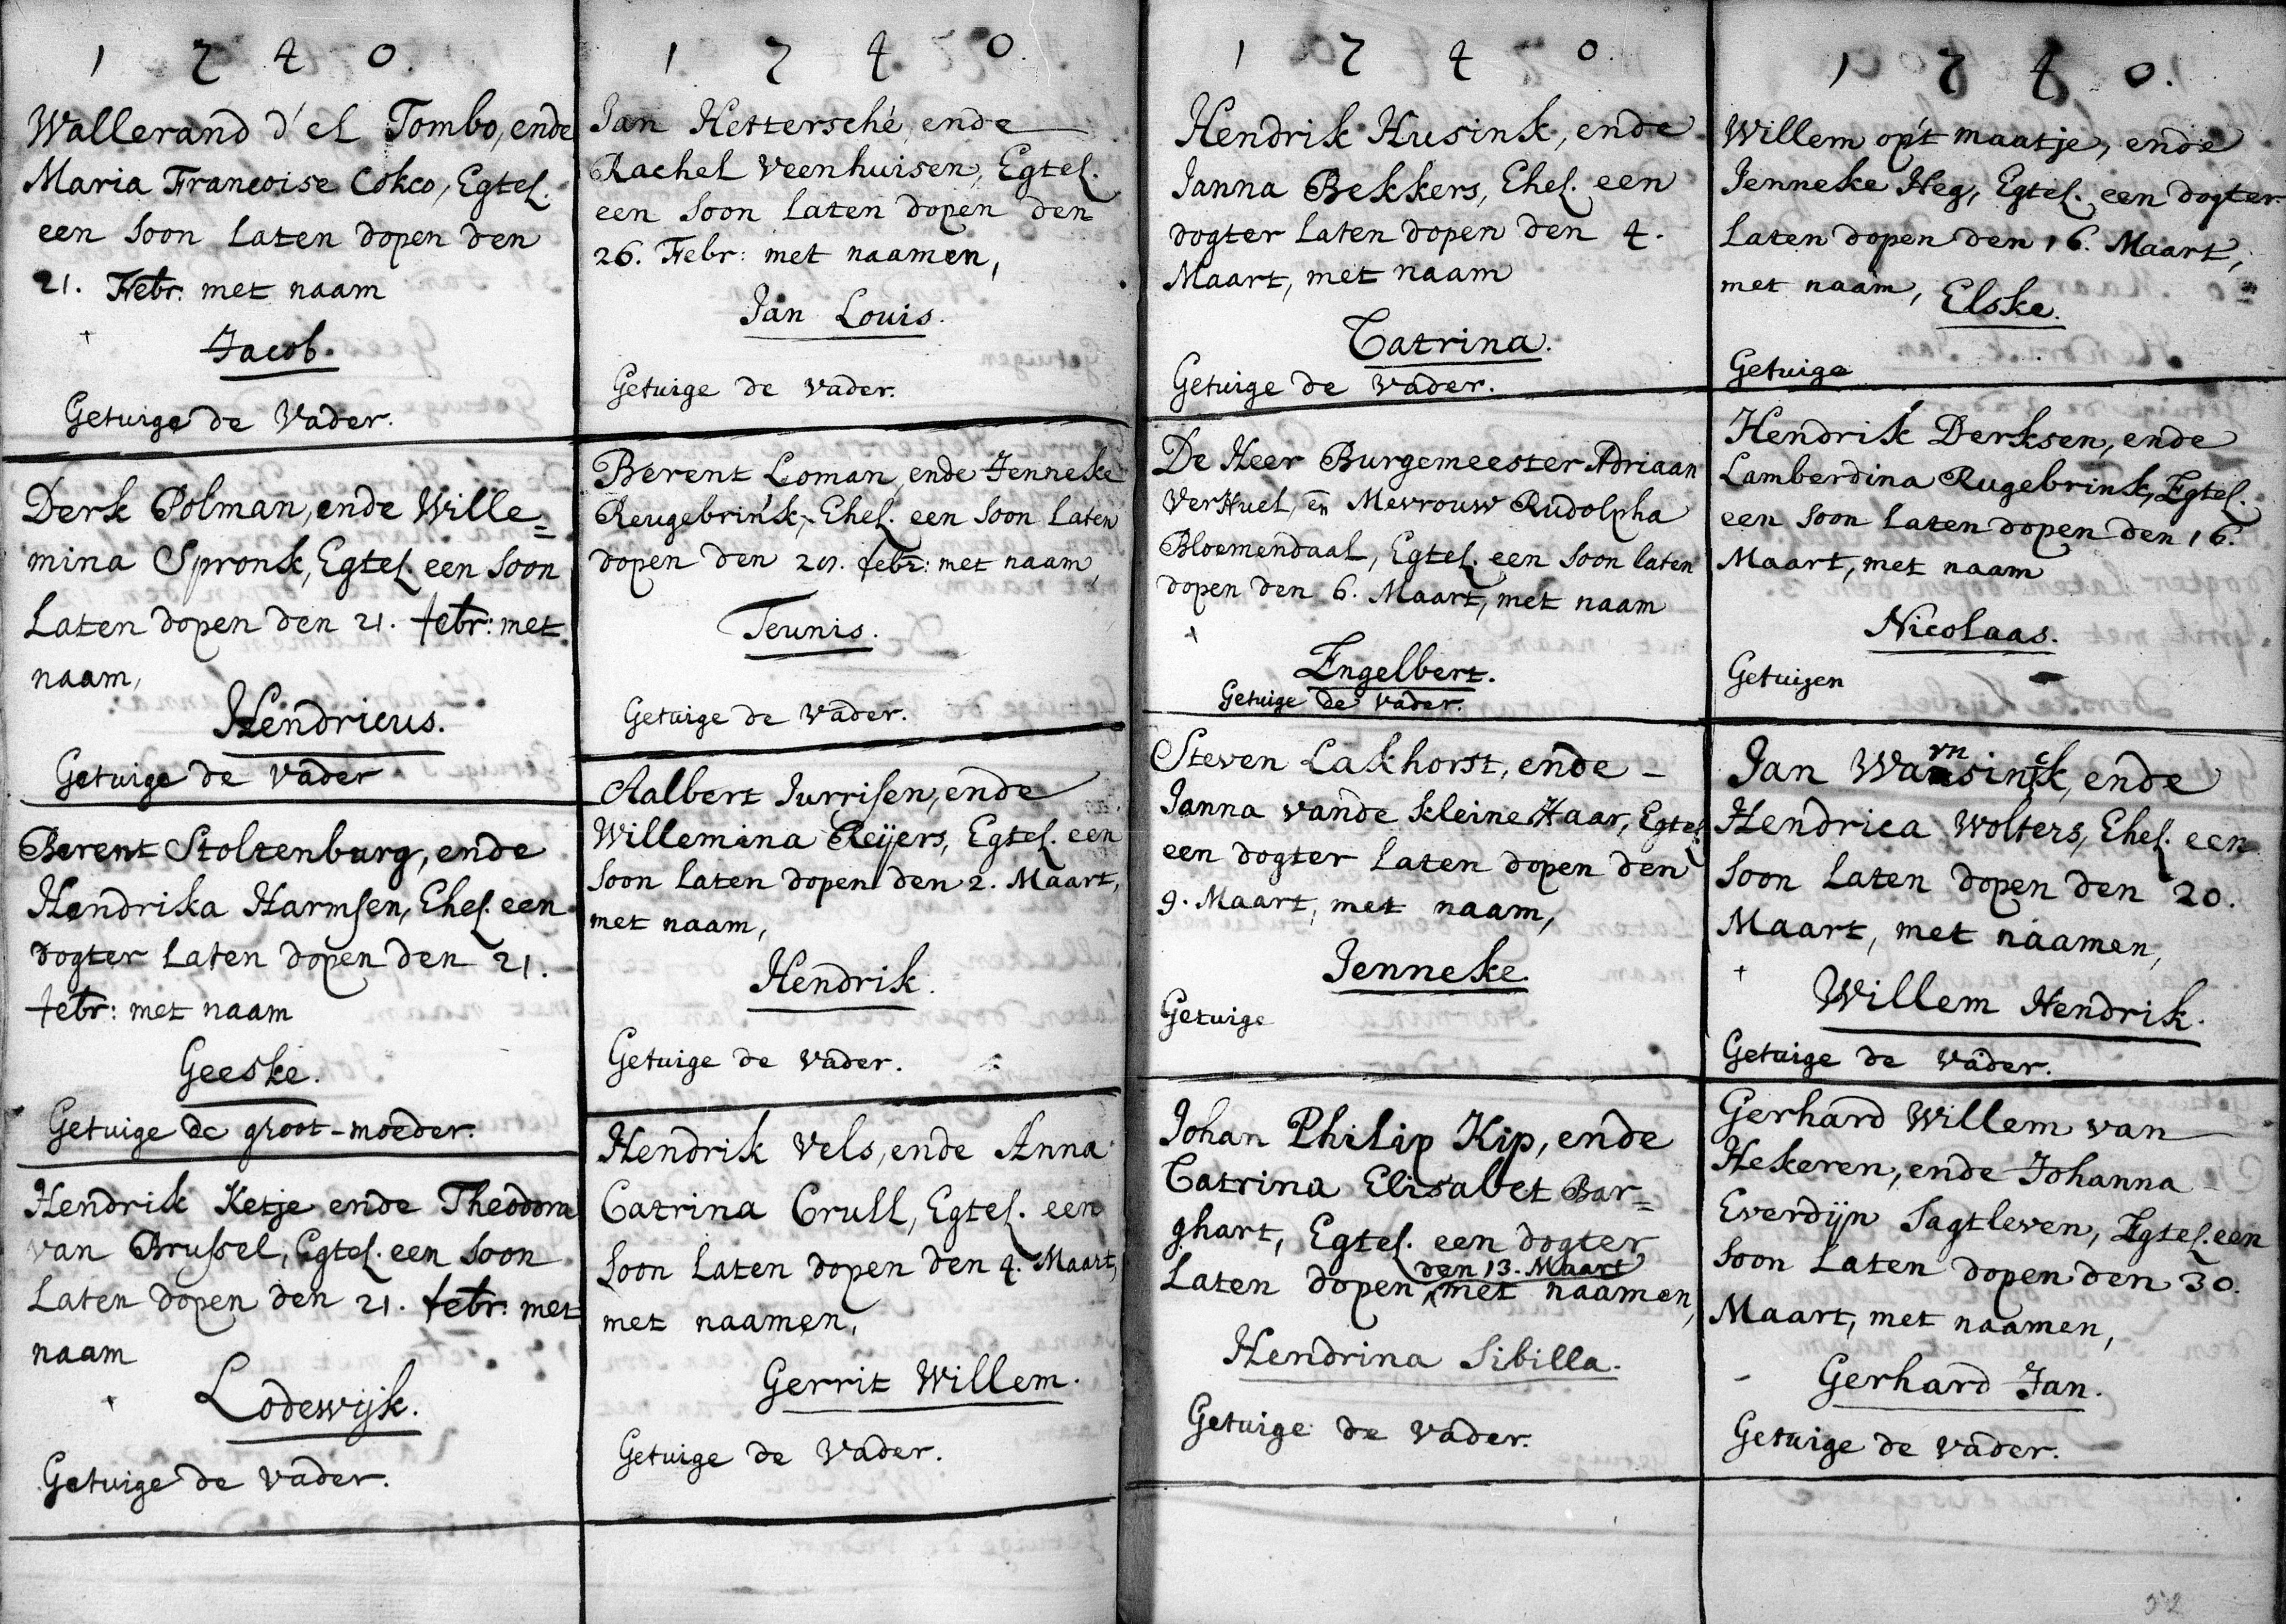 1740.
Wallerand d'el Tombo, ende
Maria Francoise Cokco, Egtel.
een soon laten dopen den
21. Febr: met naam
Jacob.
Getuige de Vader.
Derk Polman, ende Wille=
mina Spronk, Egtel. een soon
laten dopen den 21. febr: met
naam,
Hendricus.
Getuige de vader
Berent Stoltenburg, ende
Hendrika Harmsen, Ehel. een
dogter laten dopen den 21.
febr: met naam
Geeske.
Getuige de groot-moeder.
Hendrik Ketje ende Theodora
van Brussel, Egtel. een soon
laten dopen den 21. febr: met
naam
Lodewijk.
Getuige de vader.
1740.
Jan Hettersché, ende
Rachel Veenhuisen, Egtel.
een soon laten dopen den
26. Febr: met naamen,
Jan Louis.
Getuige de vader.
Berent Loman, ende Jenneke
Reugebrink, Ehel. een soon laten
dopen den febr: met naam,
Teunis.
Getuige de vader.
Aalbert Jurrisen, ende
Willemina Reijers, Egtel. een
soon laten dopen den 2. Maart,
met naam,
Hendrik.
Getuige de vader.
Hendrik Vels, ende Anna
Catrina Crull, Egtel. een
soon laten dopen den 4. Maart,
met naamen,
Gerrit Willem.
Getuige de Vader.
1740.
Hendrik Husink, ende
Janna Bekkers, Ehel. een
dogter laten dopen den 4.
Maart, met naam
Catrina.
Getuige de vader.
De Heer Burgemeester Adriaan
VerHuel, en Mevrouw Rudolpha
Bloemendaal, Egtel. een soon laten
dopen den 6. Maart, met naam
Engelbert.
Getuige de vader.
Steven Lakhorst, ende
Janna vande kleine Haar, Egtel.
een dogter laten dopen den
9. Maart, met naam,
Jenneke.
Getuige
Johan Philip Kip, ende
Catrina Elisabet Bar=
ghart, Egtel. een dogter
den 13. Maart
laten dopen met naamen,
Hendrina Sibilla.
Getuige de vader.
1740.
Willem op't maatje, ende
Jenneke Heg, Egtel. een dogter
laten dopen den 16. Maart,
met naam, Elske.
Getuige
Hendrik Derksen, ende
Lamberdina Rugebrink, Egtel.
een soon laten dopen den 16.
Maart, met naam
Nicolaas.
Getuigen
Jan Warnsinck, ende
Hendrica Wolters, Ehel. een
soon laten dopen den 20.
Maart, met naamen,
Willem Hendrik.
Getuige de vader.
Gerhard Willem van
Hekeren, ende Johanna
Everdijn Sagtleven, Egtel. een
soon laten dopen den 30.
Maart, met naamen,
Gerhard Jan.
Getuige de vader.
52